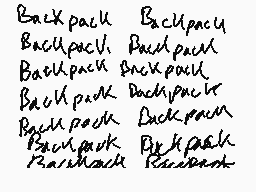 Backpack Backpack
Backpack. Backpack
Backpack Backpack
Backpack Backpack
Backpack Backpack
Backpack Backpack
Backpack Backpack